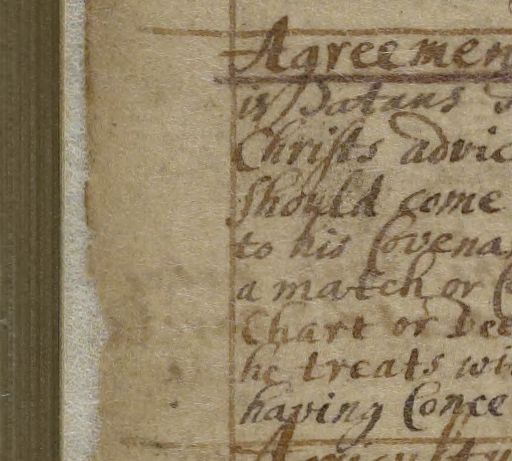 Agreemen
is Satans
Christs advic
Should come
to his Covena
a match or C
Chart or Dee
he treats wi
having Conce
Agricultu